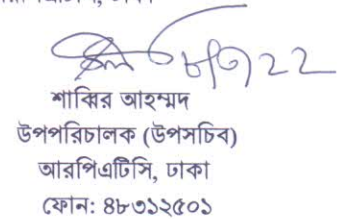 ৮/৩/২২
শাব্বির আহম্মদ
উপপরিচালক (উপসচিব)
আরপিএটিসি, ঢাকা
ফোন: ৪৮৩১২৫০১